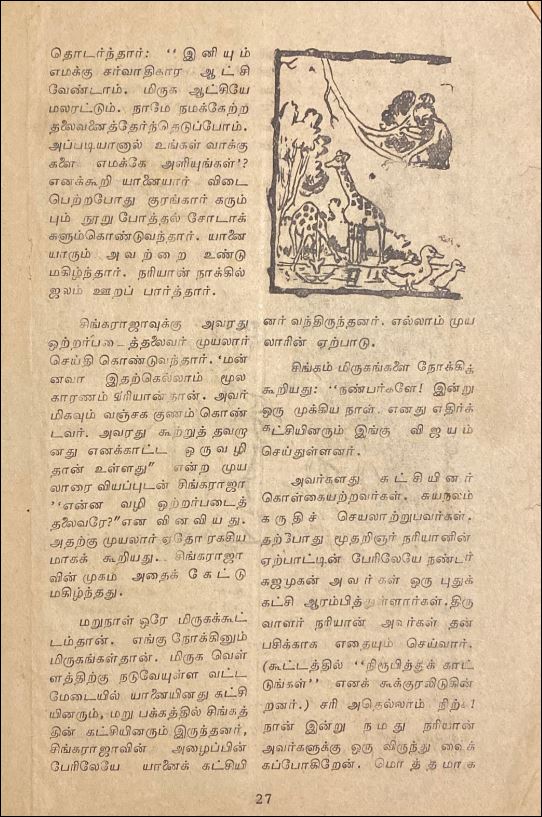 தொடர்ந்தார்: ‘‘ இ னி யு ம்
எமக்கு சர்வாதிகார ஆட்சி
வேண்டாம். மிருக ஆட்சியே
மலரட்டும். நாமே நமக்கேற்ற
தலைவனைத்தேர்ந்தெடுப்போம்.
அப்படியானால் உங்கள் வாக்கு
களை எமக்கே அளியுங்கள்’?
எனக்கூறி யானையார் விடை
பெற்றபோது குரங்கார் கரும்
பும் நூறு போத்தல் சோடாக்
களும்கொண்டுவந்தார். யானை
யாரும் அவற்றை உண்டு
மகிழ்ந்தார். நரியான் நாக்கில்
ஜலம் ஊறப் பார்த்தார்.
சிங்கராஜாவுக்கு அவரது
ஒற்றர்படைத்தலைவர் முயலார்
செய்தி கொண்டுவந்தார். ‘மன்
னவா இதற்கெல்லாம் மூல
காரணம் நரியான்தான். அவர்
மிகவும் வஞ்சக குணம் கொண்
டவர். அவரது கூற்றுத் தவறு
னது எனக்காட்ட ஒரு வழி
தான் உள்ளது” என்ற முய
லாரை வியப்புடன் சிங்கராஜா
‘‘என்ன வழி ஒற்றர்படைத்
தலைவரே?”என வினவியது.
அதற்கு முயலார் ஏதோ ரகசிய
மாகக் கூறியது. சிங்கராஜா
வின் முகம் அதைக் கேட்டு
மகிழ்ந்தது.
மறுநாள் ஒரே மிருகக்கூட்
டம்தான். எங்கு நோக்கினும்
மிருகங்கள்தான். மிருக வெள்
ளத்திற்கு நடுவேயுள்ள வட்ட
மேடையில் யானையினது கட்சி
யினரும், மறு பக்கத்தில் சிங்கத்
தின் கட்சியினரும் இருந்தனர்,
சிங்கராஜாவின் அழைப்பின்
பேரிலேயே யானைக் கட்சியி
னர் வந்திருந்தனர். எல்லாம் முய
லாரின் ஏற்பாடு.
சிங்கம் மிருகங்களை நோக்கித்
கூறியது: ‘‘நண்பர்களே! இன்று
ஒரு முக்கிய நாள். எனது எதிர்க்
கட்சியினரும் இங்கு விஜயம்
செய்துள்ளனர்.
அவர்களது கட்சியினர்
கொள்கையற்றவர்கள். சுயநலம்
கருதிச் செயலாற்றுபவர்கள்.
தற்போது மூதறிஞர் நரியானின்
ஏற்பாட்டின் பேரிலேயே நண்டர்
கஜமுகன் அவர்கள் ஒரு புதுக்
கட்சி ஆரம்பித்துள்ளார்கள்.திரு
வாளர் நரியான் அவர்கள் தன்
பசிக்காக எதையும் செய்வார்.
(கூட்டத்தில் ‘‘நிரூபித்துக் காட்
டுங்கள்’’ எனக் கூக்குரலிடுகின்
றனர்.) சரி அதெல்லாம் நிற்க!
நான் இன்று நமது நரியான்
அவர்களுக்கு ஒரு விருந்து வைக்
கப்போகிறேன். மொத்தமாக
27